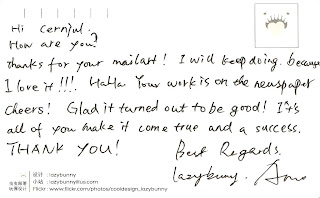 Hi Cernjul.
How are you?
thanks for your mailart! I will keep doing. because
I love it!!! HaHa Your work is on the newspaper
Cheers! Glad it turned out to be good! It's
all of you make it come true and a success.
THANK YOU!
Best Regards.
lazybunny.
设计：lazybunny
小站：lazybunnyillus.com
Flickr：www.flickr.com/photos/cooldesign_lazybunny